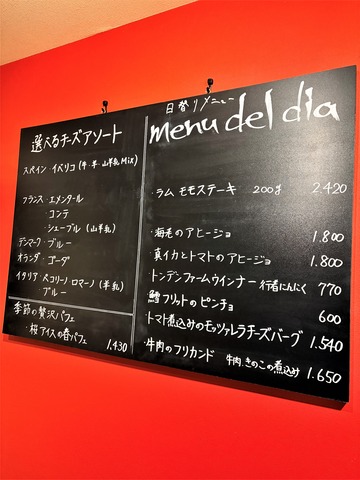 選べるチズアソート
スペイン・イベリコ (牛・羊・山羊乳Mix)
フランス・エメンタール
・コンテ
・シェーブル (山羊乳)
デンマーク・ブルー
オランダ・ゴーダ
イタリア・ペコリーノロマーノ (羊乳)
・ブルー
季節の贅沢パフェ
・桜アイスの春パフェ 1.430
日替りメニュー
menu del dia
・ラム モモステーキ 200g 2,420
・海老のアヒージョ 1.800
・真イカとトマトのアヒージョ 1.800
・トンデンファームウインナー 行者にんにく 770
・鱈フリットのピンチョ 600
・トマト煮込みのモッツァレラチーズバーグ 1.540
・牛肉のフリカンド 牛肉、きのこの煮込み 1.650